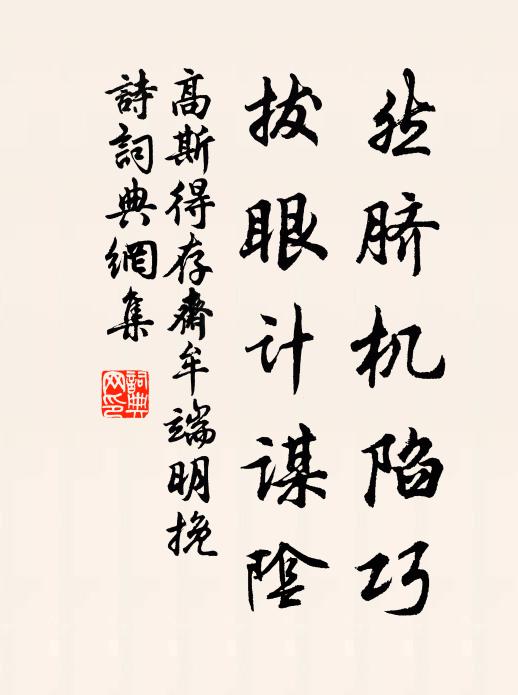 然脐机陷巧
拔眼计谋陰
高斯得存齋牟端明挽
詩詞典網集
詞典網印